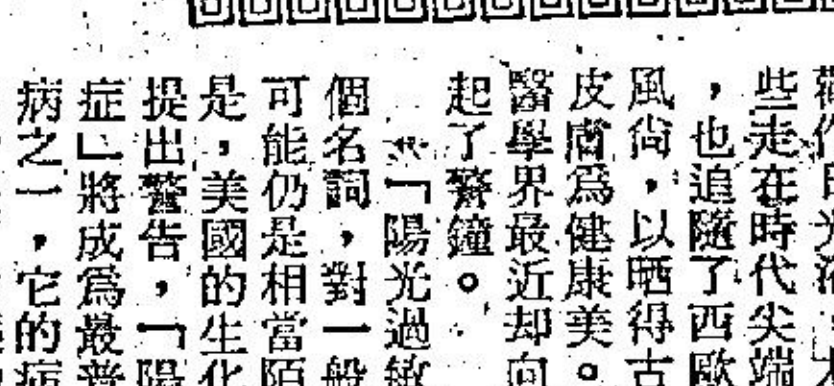 些走在時代尖端
，也追隨了西歐
風尚，以晒得古
皮膚爲健康美。
醫學界最近却向
起了警鐘。
「陽光過敏
個名詞，對一般
可能仍是相當陌
是，美國的生化
提出警告，「陽
症」將成爲最普
病之一，它的病